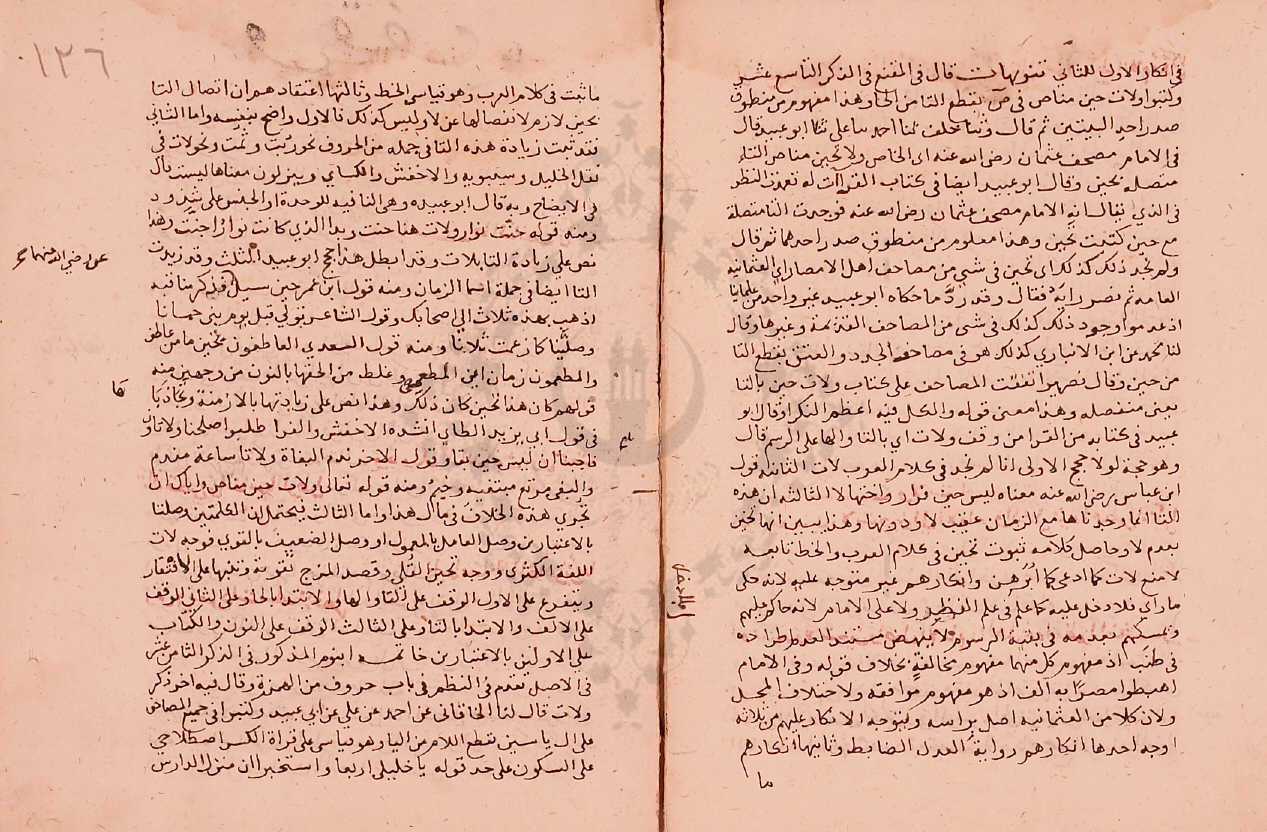 في انكار الاول للثاني تنويهات قال في المقنع في الذكر التاسع عشر
وكتبوا ولات حين مناص في ص بقطع التا من الحا وهذا مفهوم من منطوق
صدر احد البيتين ثم قال وثنا خلف ثنا احمد ثنا علي ثنا ابو عبيد قال
في الامام مصحف عثمان رضى الله عنه اى الخاص ولا تحين مناص التاء
متصله بحين وقال ابو عبيد ايضا في كتاب القراآت له تعمدت النظر
فى الذي يقال انه الامام مصحف عثمان رضى الله عنه فوجدت التا متصلة
مع حين كتبت تحين وهذا معلوم من منطوق صدر احدهما ثم قال
ولم نجد ذلك كذلك اى تحين في شي من مصاحف اهل الامصار اي العثمانيه
العامه ثم نصر رايه فقال وقد ردَّ ما حكاه ابو عبيد غير واحد من علمائنا
اذ عدموا وجود ذلك كذلك في شى من المصاحف القديمة وغيرها وقال
لنا محمد عن ابن الانباري كذلك هو في مصاحفه الجدد والعتق بقطع التا
من حين وقال نصير اتفقت المصاحف على كتاب ولات حين بالتا
يعنى منفصله وهذا معنى قوله والكل فيه اعظم النكرا وقال ابو
عبيد في كتابه من القرا من وقف ولات اي بالتا والها على الرسم قال
وهو حجة لولا حجج الاولى انا لم نجد في كلام العرب لات الثانيه قول
ابن عباس رضى الله عنه معناه ليس حين فرار واختها لا الثالثه ان هذه
التا انما وجدناها مع الزمان عقيب لا ودونها وهذا يبين انها تحين
بعدم لا وحاصل كلامه ثبوت تحين في كلام العرب والخط تابعه
لا منع لات كما ادعى كما ابرهن وانكارهم غير متوجه عليه لانه حكى
ما راي فلا دخل عليه كما علم في علم النظر ولا على الامام لانه حاكم عليهم
وتمسكهم بعدمه في بقية الرسوم لا ينهض مستندا لعدم اطراده
في اذ مفهوم كل منهما مفهوم مخالفةٍ بخلاف قوله وفى الامام
اهبطوا مصرًا به الف اذ هو مفهوم موافقه ولاختلاف المحل
ولان كلا من العثمانيه اصل براسه ويتوجه الانكار عليهم من ثلاثه
اوجه احدها انكارهم رواية العدل الضابط وثانيها انكارهم
ما
١٢٦
ما ثبت في كلام العرب وهو قياسي الخط وثالثها اعتقادهم ان اتصال التا
بحين لازم لانفصالها عن لا وليس كذلك فالاول واضح بنفسه واما الثاني
فقد ثبت زيادة هذه التا في جمله من الحروف نحو رُبّت وثمت ونحو لات في
نقل الخليل وسيبويه والاخفش والكساي ويقولون معناها ليست قال
في الايضاح وبه قال ابو عبيده وهى النافيه للوحدة او الجنس على شذوذ
ومنه قوله حنّت نوار ولات هنا حنت وبدا الذي كانت نوار اجنّت وهذا
نص على زيادة التا بلات وقد ابطل هذا حجج ابو عبيد الثلث وقد زيدت
التا ايضا في جملة اسما الزمان ومنه قول ابن عمر حين سيل فذكر مناقبه
اذهب بهذه تلان الى اصحابك وقول الشاعر نولي قبل يوم بينى جمانا
وصلّينا كما زعمت تلانا ومنه قول السعدي العاطفون تحين ما من عاطف
والمطعمون زمان ابن المطعم وغلط من الحقها بالنون من وجهين منه
قولهم كان هذا تحين كان ذلك وهذا نص على زيادتها بالازمنة وتجاذبا
في قول ابي يزيد الطاي انشده الاخفش والفرا طلبوا صلحنا ولات اوان
فاجبنا ان ليس حين بقا وقول الاخر ندم البغاة ولات ساعة مندم
والبغى مرتع مبتغيه وخيم ومنه قوله تعالى ولات حين مناص واياك ان
تجري هذه الخلاف في مال هذا واما الثالث فيحتمل ان الكلمتين وصلتا
بالاعتبارين وصل العامل بالمعمول او وصل الضعيف بالقوي فوجه لات
اللغة الكثرى ووجه تحين القلى وقصد المزج تقوية وتنبيها على الافتقار
ويتفرع على الاول الوقف على التا والها والابتدا بالحا وعلى الثاني الوقف
على الالف والابتدا بالتا وعلى الثالث الوقف على النون والكتاب
على الاولين بالاعتبارين خاتمه ابنوم المذكور في الذكر الثامن عشر
في الاصل تقدم في النظم في باب حروف من الهمزة وقال فيه اخر ذكر
ولات قال لنا الخاقاني عن احمد عن علي عن ابي عبيد وكتبوا في جميع المصاحف
على ال ياسين بقطع اللام من اليا وهو قياسي على قراة الكسر اصطلاحي
على السكون على حد قوله يا خليلي اربعا واستخبرا ان منزل الدارس